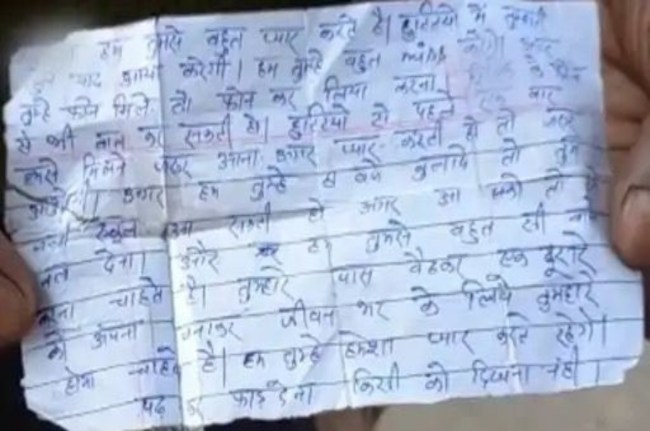 हम तुमसे बहुत प्यार करते है। छुट्टियो में तुम्हारी
याद आया करेगी। हम तुम्हे बहुत miss करेगे। अगर
तुम्हे फोन मिले तो फोन कर लिया करना।
से भी बात कर सकती हो। छुट्टियो से पहले एक बार
हमसे मिलने जरूर आना। अगर प्यार करती हो तो जरूर
आओगी। अगर हम तुम्हे 8 बजे बुलादे तो तुम
स्कूल आ सकती हो अगर आ सको तो
बता देना। और हम तुमसे बहुत सी बाते
करना चाहते है। तुम्हारे पास बैठकर एक दूसरे
को अपना बनाकर जीवन भर के लिये तुमहारे
होना चाहते है। हम तुम्हे हमेशा प्यार करते रहेगे।
पढ़ कर फाड़ देना किसी को दिखना नही।